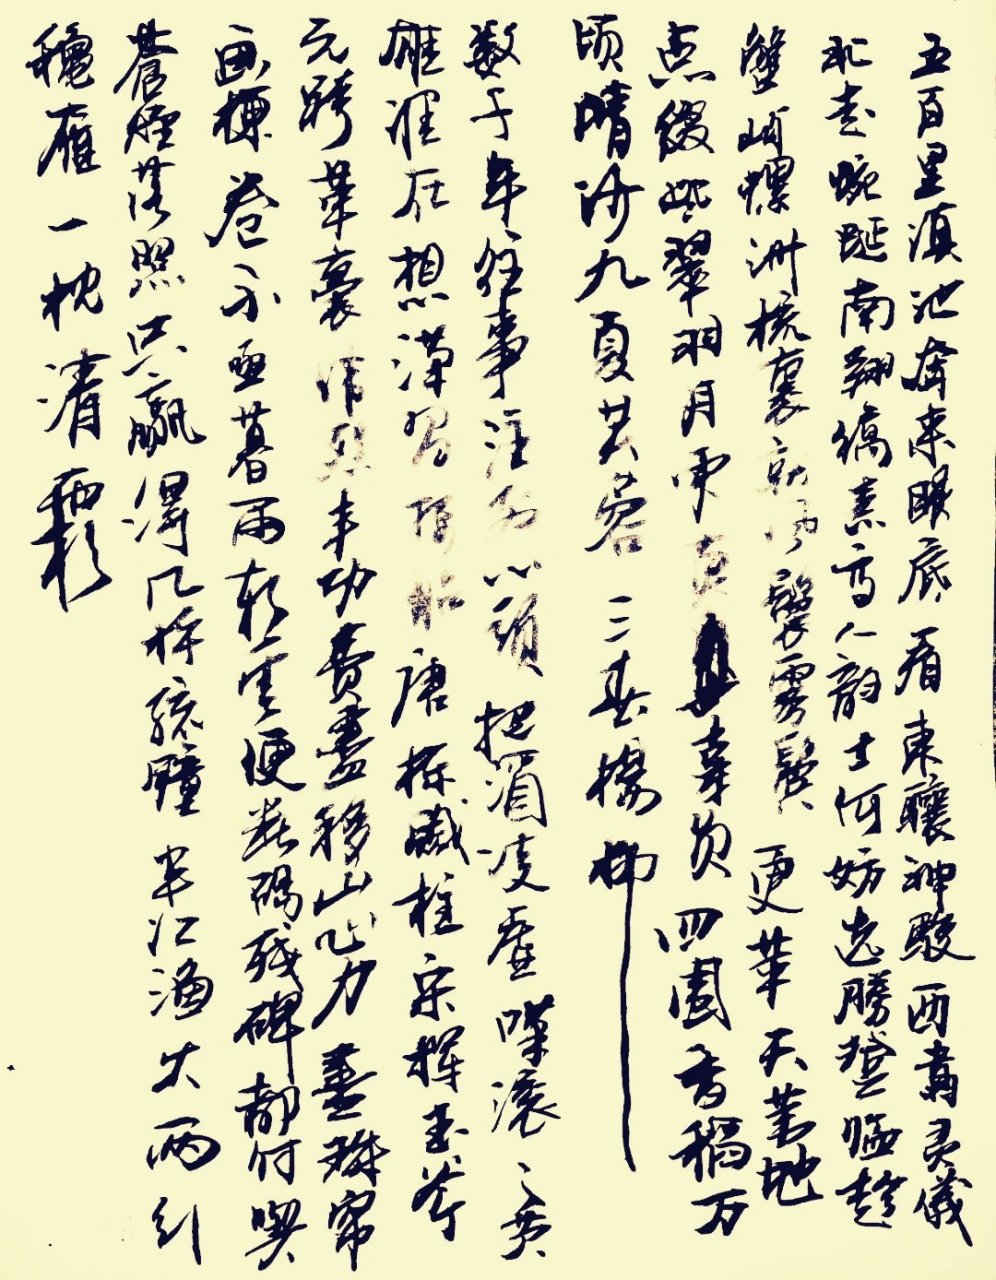 五百里滇池奔来眼底 看东骧神骏西翥灵仪
北走蜿蜒南翔缟素高人韵士何妨选胜登临趁
蟹屿螺洲梳裹就风鬟雾鬓 更苹天苇地
点缀些翠羽丹霞莫辜负 四围香稻万
顷晴沙九夏芙蓉 三春杨柳
数千年往事注到心头 把酒凌虚叹滚々英
雄谁在想汉习楼船 唐标铁柱宋挥玉斧
元跨革囊 伟烈丰功费尽移山心力 尽珠帘
画栋卷不及暮雨朝云便断碣残碑都付与
苍烟落照只赢得几杵疏钟 半江渔火两行
秋雁 一枕清霜